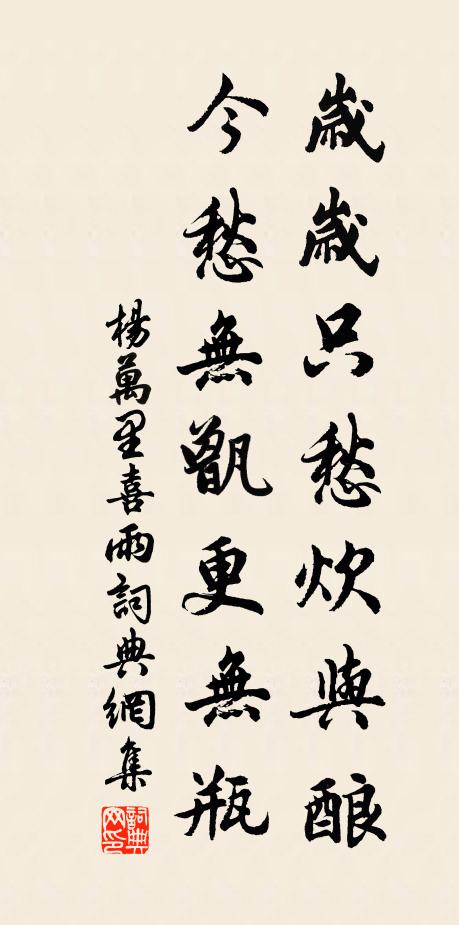 歲歲只愁炊與酿
今愁無甑更無瓶
楊萬里喜雨詞典網集
詞典
网印